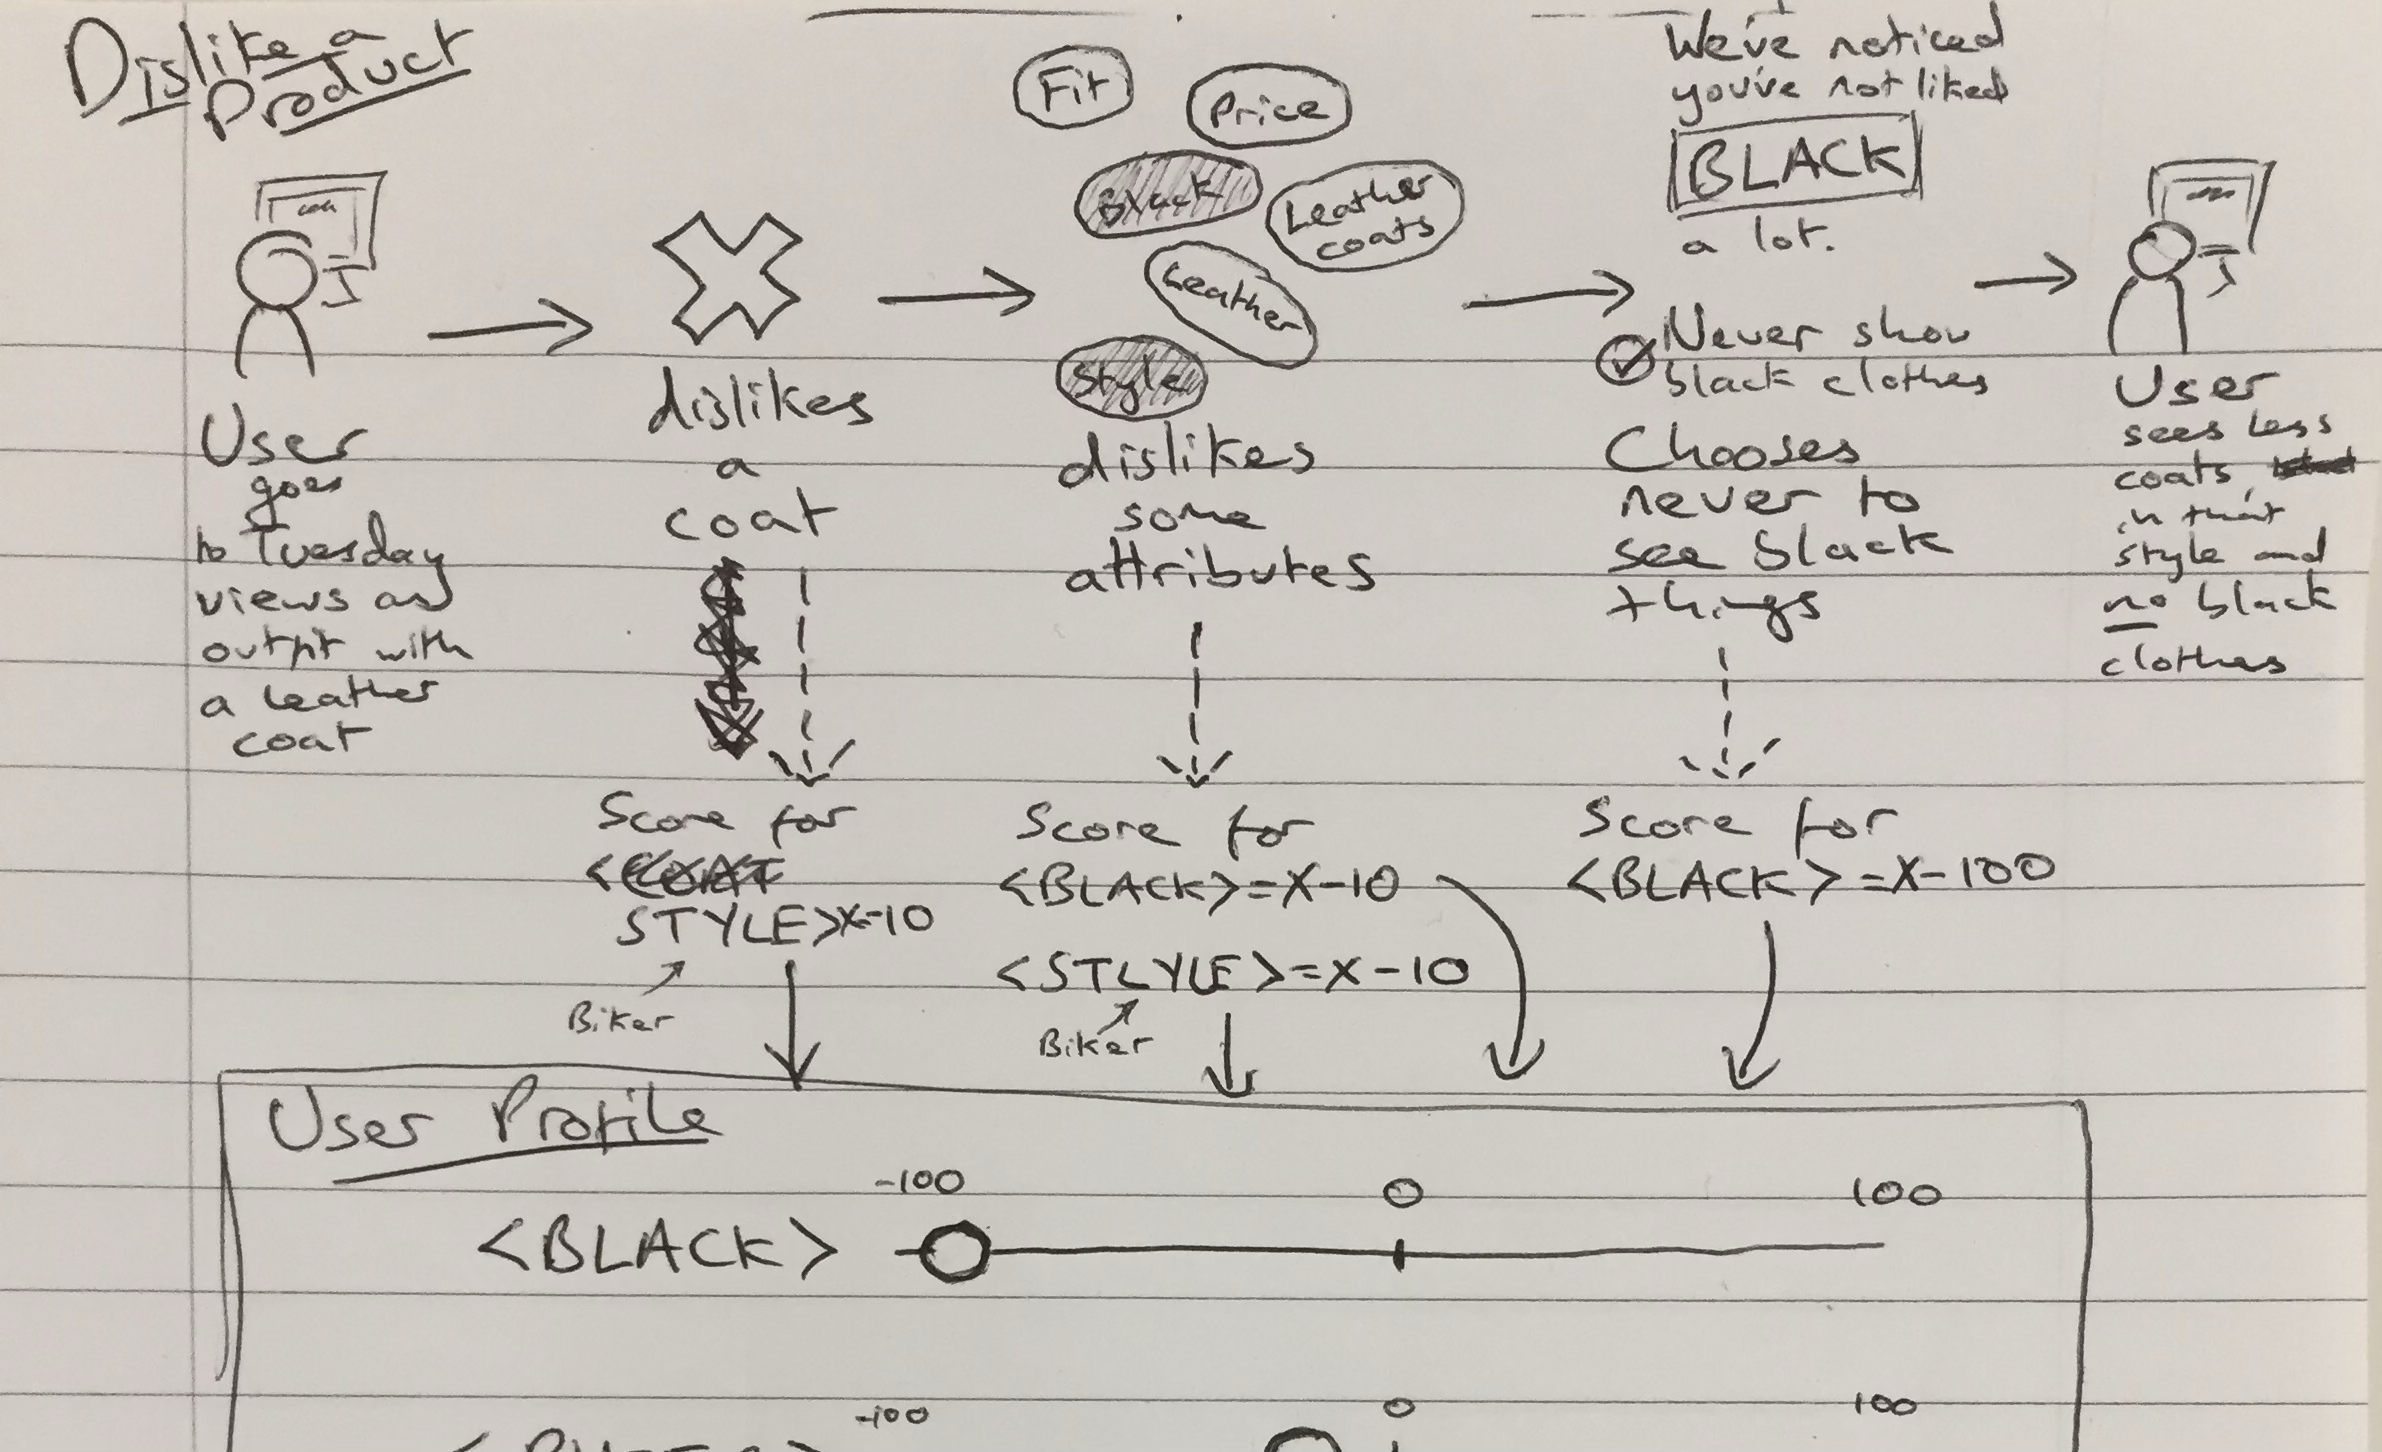 Dislike a
Product
Fit
Price
Black
Leather
coats
Leather
Style
We've noticed
you've not liked
BLACK
a lot.
Never show
black clothes
User
goes
to Tuesday
views an
outpit with
a leather
coat
dislikes
a
coat
dislikes
some
attributes
Chooses
never to
see black
things
User
sees less
coats,
in that
style and
no black
clothes
Score for
<COAT
STYLE>X-10
Biker
Score for
<BLACK>=X-10
<STLYLE>=X-10
Biker
Score for
<BLACK>=X-100
User Profile
-100 0 100
<BLACK>
-100 0 100